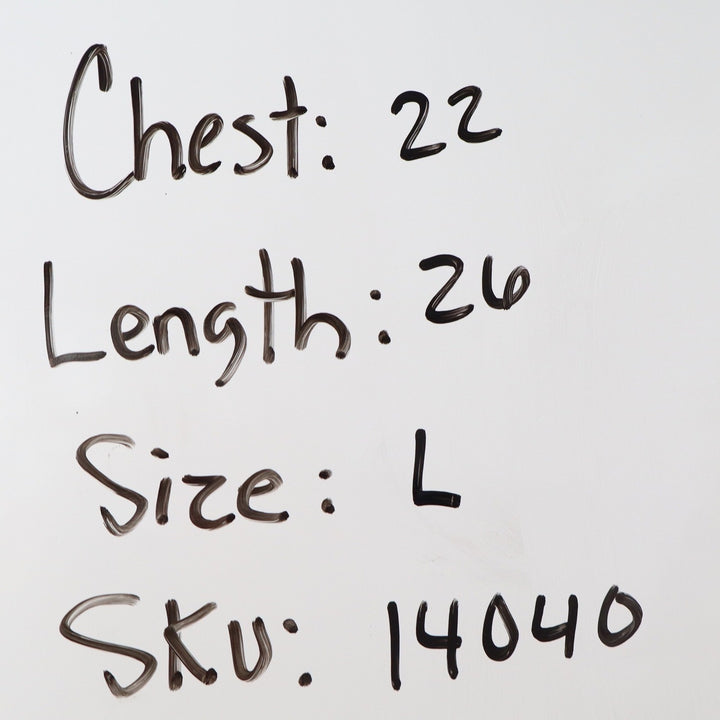 Chest: 22
Length: 26
Size: L
SKU: 14040